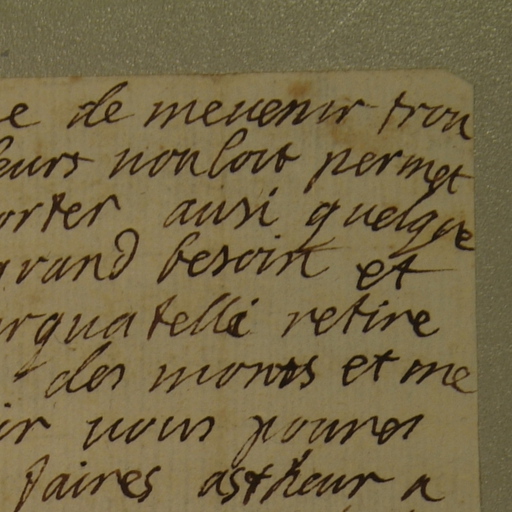 e de meuenir trou
leurs uouloit permet
orter ausi quelque
grand besoint et
arquatelli retire
des monts et me
ir uous poures
faires astheur a